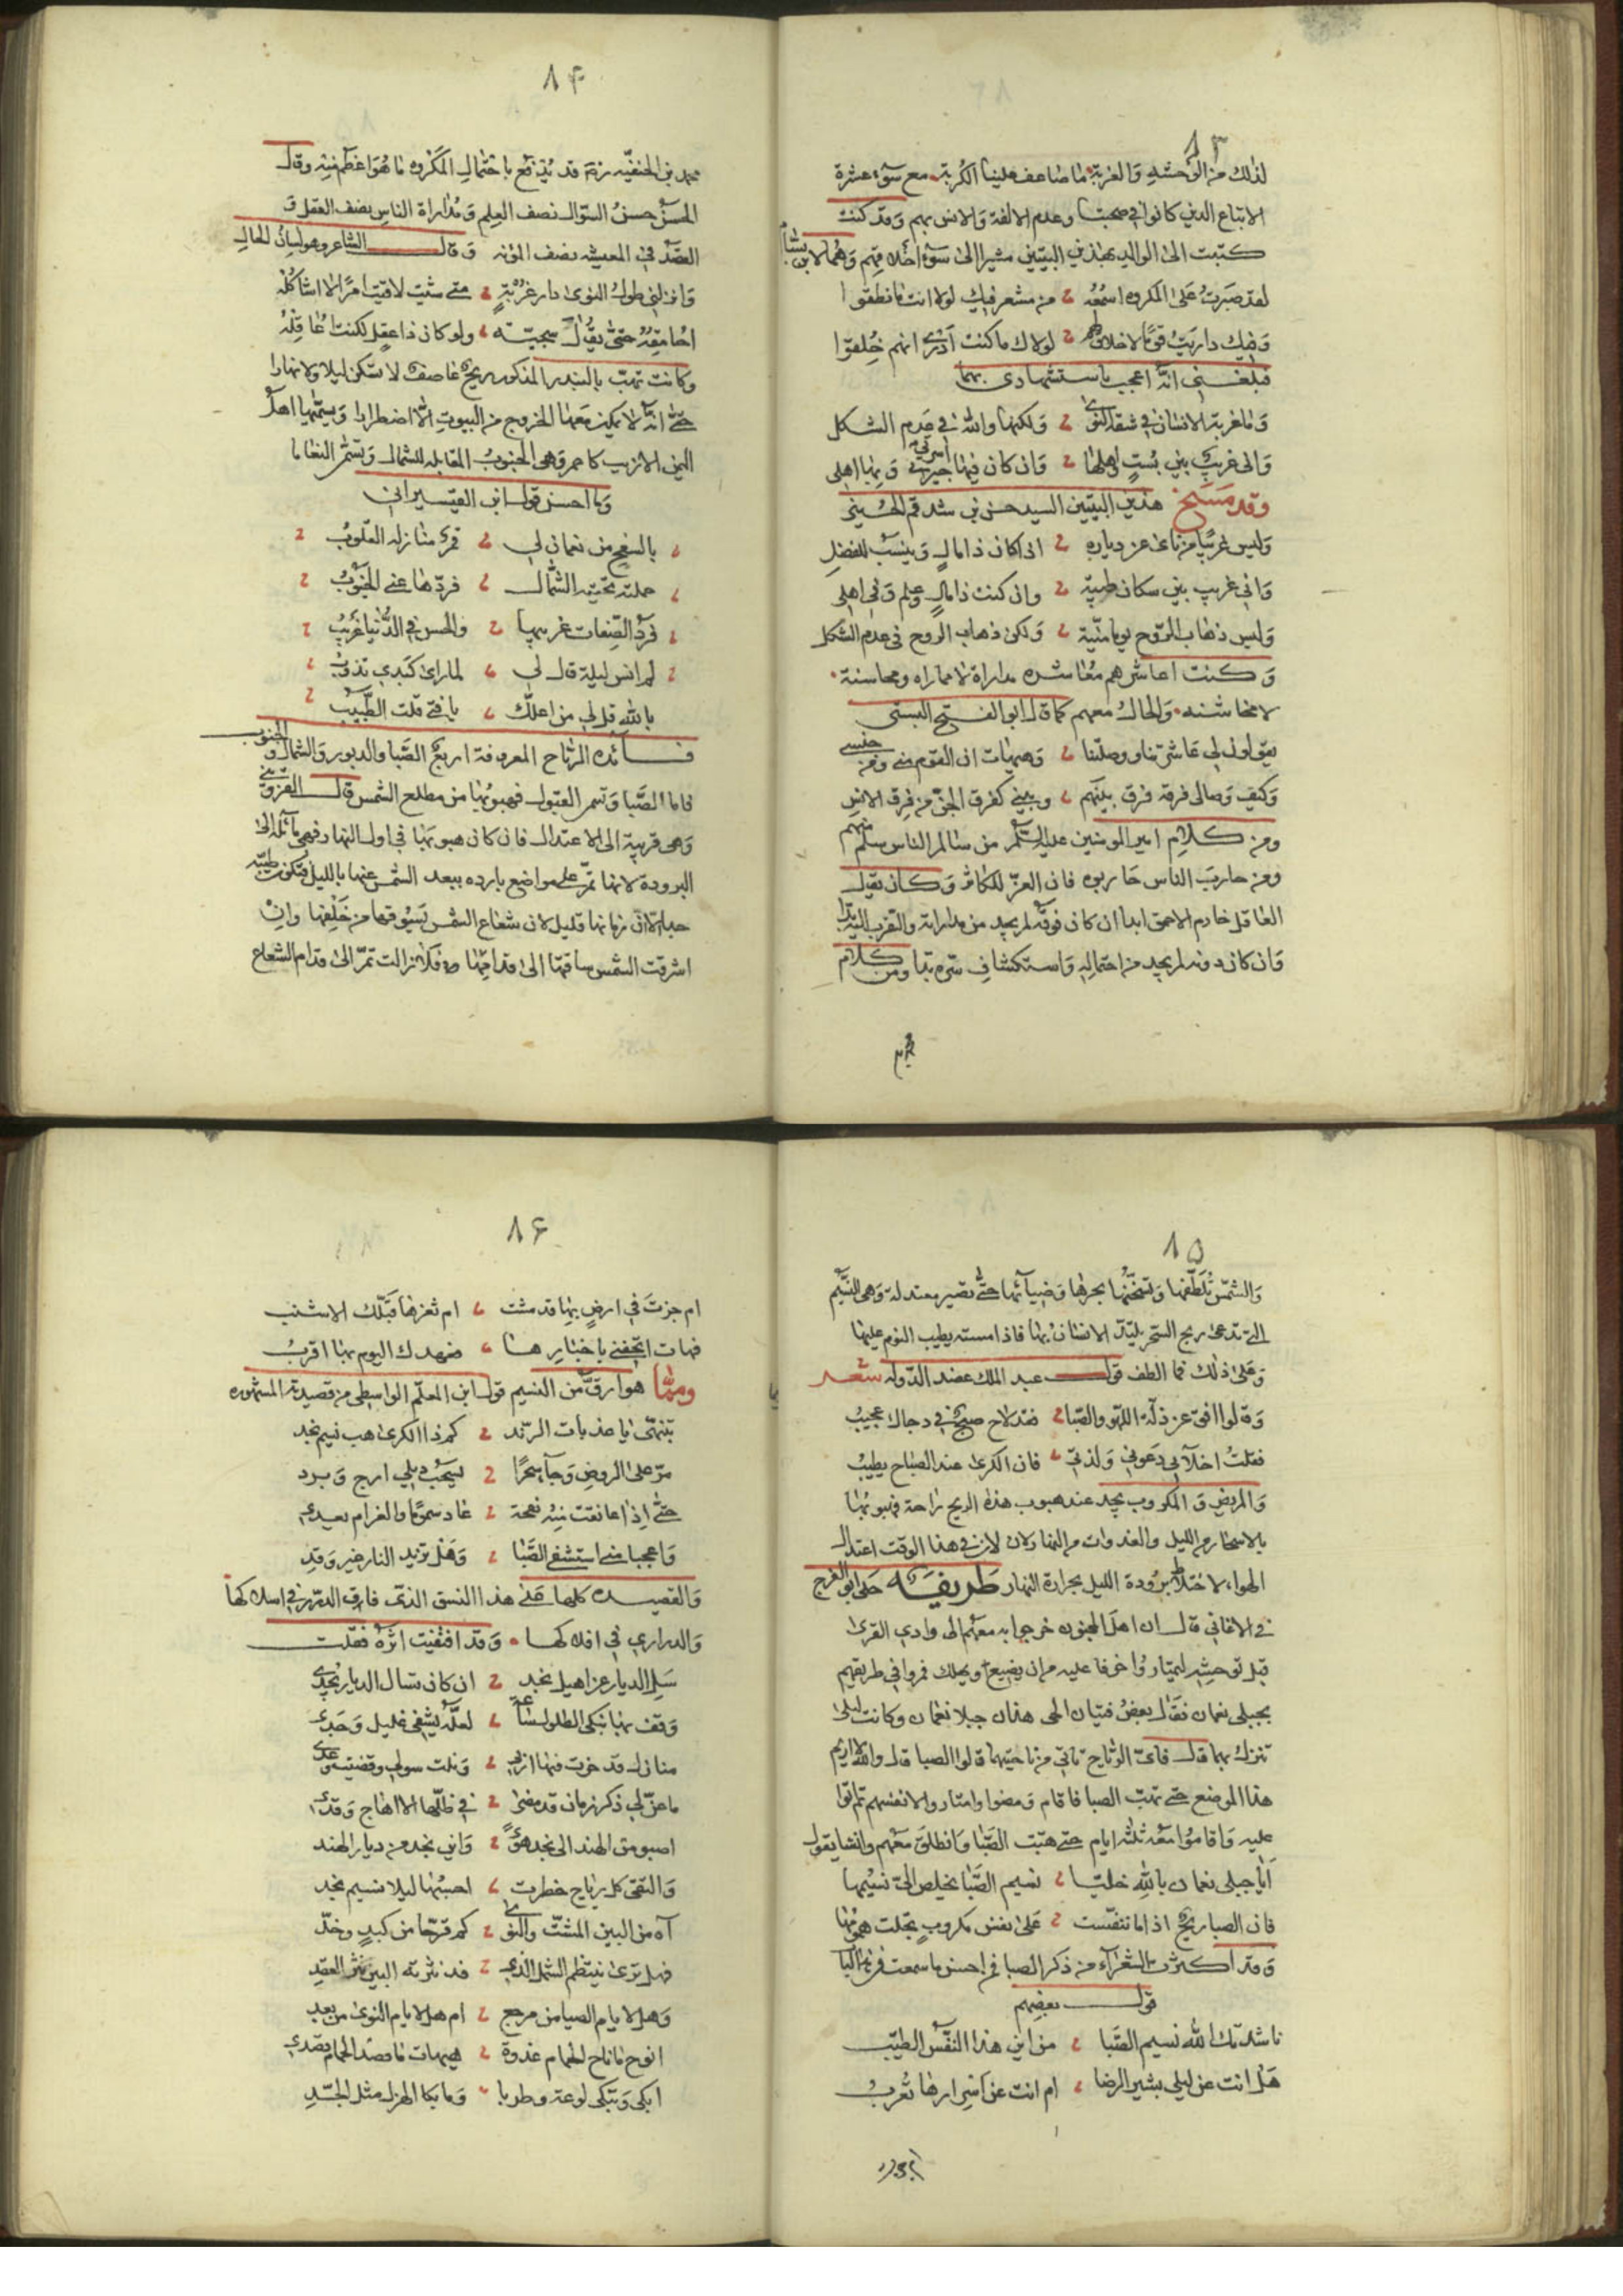 ١٣
لذلك من الوحشة والغربة ما ضاعف علينا الكربة مع سوء عشرة
الاتباع الذين كانوا في صحبتنا وعدم الالفة والانس بهم وقد كنت
كتبت الى الوالد بهذين البيتين مشيرا الى سوء اخلاقهم وهما لابن
لقد صبرت على المكروه اسمعه من معشر فيك لولا انت ما نطقوا
وفيك داريت قوما لا خلاق لهم لولاك ما كنت ادري انهم خلقوا
فبلغني انه اعجب باستشهادي بهما
وما غربة الانسان في شقة النوى ولكنها والله في عدم الشكل
واني غريب بين بست واهلها وان كان فيها اسرتي وبها اهلي
وقد مسخ هذين البيتين السيد حسن بن شدقم الحسيني
وليس غريبا من نأى عن دياره اذا كان ذا مال وينسب للفضل
واني غريب بين سكان طيبة وان كنت ذا مال وعلم وفي اهلي
وليس ذهاب الروح يوما منية ولكن ذهاب الروح في عدم الشكل
وكنت اعاشرهم معاشرة مداراة لا مماراه ومحاسنة
لا مخاشنه والحال معهم كما قال ابو الفتح البستي
يقولون لي عاشرتنا ووصلتنا وهيهات ان القوم مني ومن جنسي
وكيف وصالي فرقة فرق بينهم وبيني كفرق الجن من فرق الانس
ومن كلام امير المومنين عليه السلم من سالم الناس سلم منهم
ومن حارب الناس حاربوه فان العز للكاثر وكان يقال
العاقل خادم الاحمق ابدا ان كان فوقه لم يجد من مداراته والتقرب اليه بدا
وان كان دونه لم يجد من احتماله واستكشاف شره بدا ومن كلام
محمد
١۴
محمد بن الحنفيه رضه قد يدفع باحتمال المكروه ما هو اعظم منه وقال
الحسن حسن السوال نصف العلم ومداراة الناس نصف العقل و
القصد في المعيشه نصف المؤنه وقال الشاعر وهو لسان الحال
وانزلني طول النوى دار غربة متى شئت لاقيت امرأ لا اشاكله
احامقه حتى يقال سجيته ولو كان ذا عقل لكنت اعاقله
وكانت تهب بالبندر المذكور ريح عاصفة لا تسكن ليلا ولا نهارا
حتى انه لا يمكن معها الخروج من البيوت الا اضطرارا ويسميها اهل
اليمن الازيب كاحمر وهي الجنوب المقابله للشمال وتسمى النعاما
وما احسن قول ابن القيسراني
بالسفح من نعمان لي قمر منازله القلوب
حملته تحيته الشمال فردها عني الجنوب
فرد الصفات غريبها والحسن في الدنيا غريب
لم انس ليلة قال لي لما رأى كبدي تذوب
بالله قل لي من اعلك يا فتى قلت الطبيب
فائده الرياح المعروفة اربع الصبا والدبور والشمال والجنوب
فاما الصبا وتسمى القبول فهبوبها من مطلع الشمس قال القزويني
وهي قريبة الى الاعتدال فان كان هبوبها في اول النهار فهي مائلة الى
البرودة لانها تمر على مواضع بارده ببعد الشمس عنها بالليل فتكون طيبة
جدا الا ان زمانها قليل لان شعاع الشمس يسوقها من خلفها وان
اشرقت الشمس ساقتها الى قدامها فلا زالت تمر الى قدام الشعاع
١۵
والشمس تلطفها وتسخنها بحرها وضيائها حتى تصير معتدلة وهي النسيم
التي تدعى ريح السحر يلتذ الانسان بها فاذا امسته يطيب النوم عليها
وعلى ذلك فما الطف قول عبد الملك عضد الدوله شعر
وقالوا افق عن لذة اللهو والصبا فقد لاح صبح في دجاك عجيب
فقلت اخلائي دعوني ولذتي فان الكرى عند الصباح يطيب
والمريض والمكروب يجد عند هبوب هذه الريح راحة فهبوبها
بالاسحار من الليل والغدوات من النهار ولان في هذا الوقت اعتدال
الهواء لاختلاط برودة الليل بحرارة النهار طريفه حكى ابو الفرج
في الاغاني قال ان اهل المجنون خرجوا به معهم الى وادي القرى
قبل توحشه ليمتاروا خوفا عليه من ان يضيع او يهلك فمروا في طريقهم
بجبلي نعمان فقال بعض فتيان الحي هذان جبلا نعمان وكانت ليلى
تنزل بهما قال فاي الرياح تاتي من ناحيتهما قالوا الصبا قال والله لا اريم
هذا الموضع حتى تهب الصبا فاقام ومضوا وامتاروا لانفسهم ثم اتوا
عليه واقاموا معه ثلثه ايام حتى هبت الصبا وانطلق معهم وانشا يقول
ايا جبلي نعمان بالله خليا نسيم الصبا يخلص الي نسيمها
فان الصبا ريح اذا ما تنفست على نفس مكروب تجلت همومها
وقد اكثرت الشعراء من ذكر الصبا فمن احسن ما سمعت
قول بعضهم
ناشدتك الله نسيم الصبا من اين هذا النفس الطيب
هل انت عن ليلى بشير الرضا ام انت عن اسرارها تعرب
١۶
ام جزت في ارض بها قد مشت ام ثغرها قبلك الاشنب
فهات اتحفني باخبارها فعهدك اليوم بها اقرب
ومما هو ارق من النسيم قول ابن المعلم الواسطي من قصيدته المشهوره
تنبهي يا عذبات الرند كم ذا الكرى هب نسيم نجد
مر على الروض وجاء سحرا يسحب ذيلي ارج وبرد
حتى اذا عانقت منه نفحة عاد سموما والغرام يعدي
واعجبا مني استشفي الصبا وهل تزيد النار غير وقد
والقصيده كلها على هذا النسق الذي فاق الدر في اسلاكها
والدراري في افلاكها وقد اقتفيت اثره فقلت
سل الديار عن اهيل نجد ان كان تسال الديار يجدي
وقف بها نبكي الطلول ساعة لعله يشفي غليل وجدي
منازل قد حزت فيها اربي ونلت سولي وقضيت
ما عن لي ذكر زمان قد مضى في ظلها الا اهاج وقدي
اصبو من الهند الى نجد هوى واين نجد من ديار الهند
والتقي كل رياح خطرت احسبها ليلا نسيم نجد
آه من البين المشت والنوى كم قرحا من كبد وخد
فهل ترى ينتظم الشمل الذي قد نثرته البين نثر العقد
وهل لايام الصبا من مرجع ام هل لايام النوى من بعد
انوح ما ناح الحمام غدوة هيهات ما قصد الحمام قصدي
ابكي وتبكي لوعة وطربا وما بكا الهزل مثل الجد